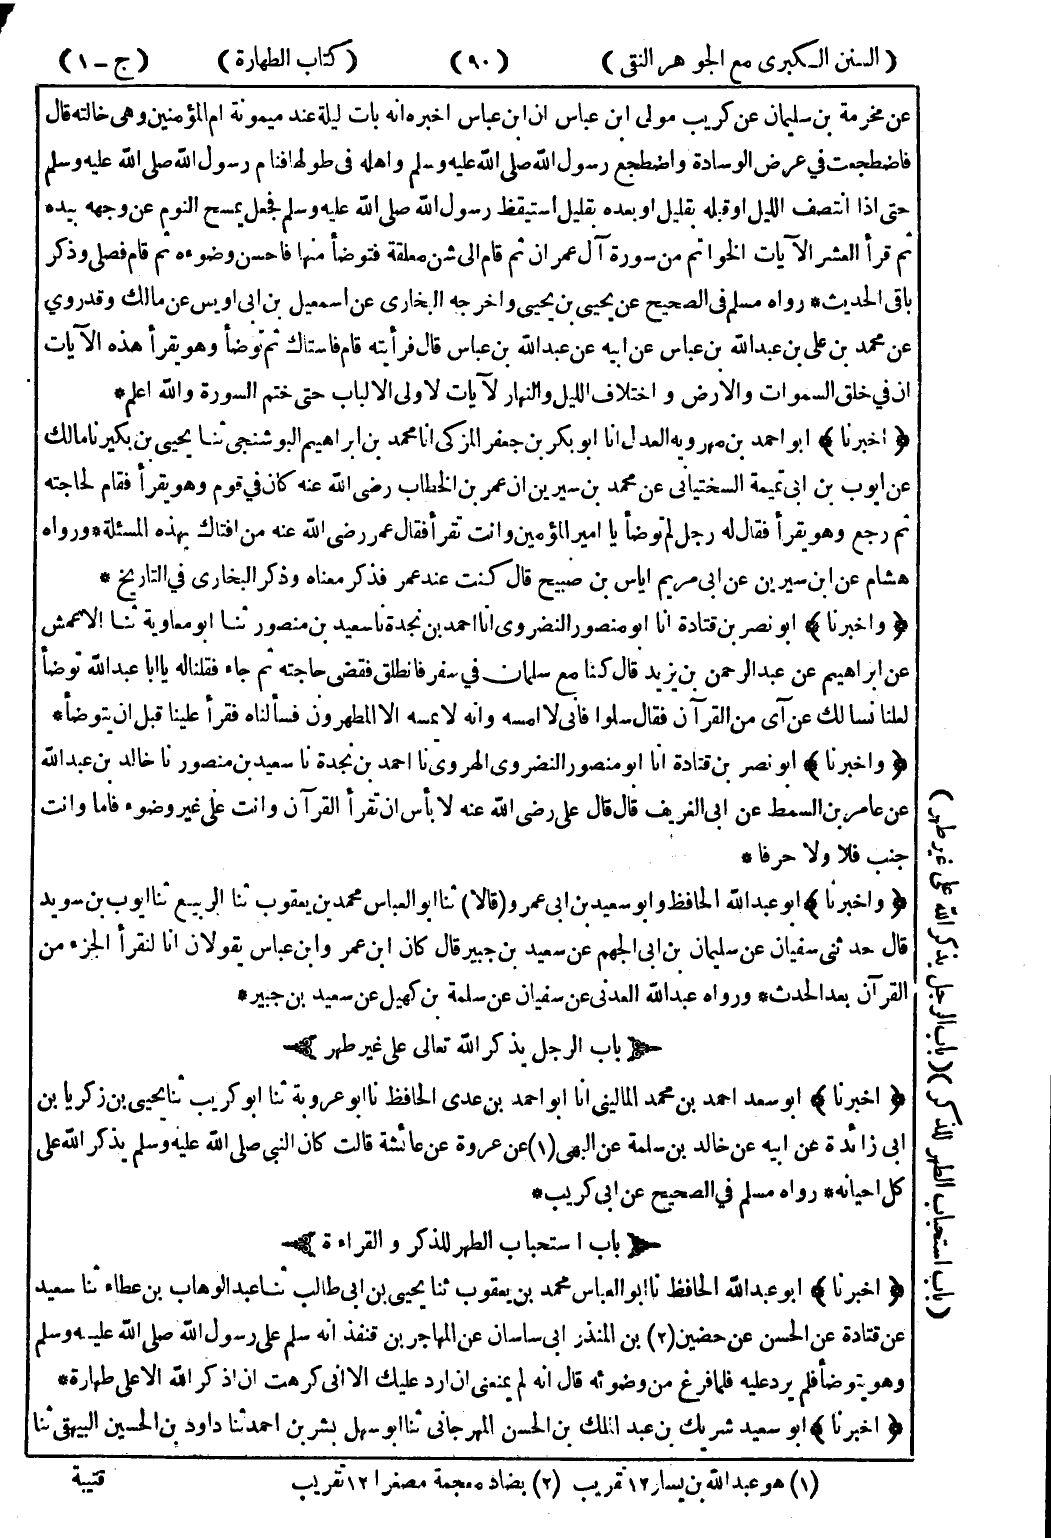 (السنن الكبرى مع الجوهر النقى) (٩٠) (كتاب الطهارة) (ج-١)
عن مخرمة بن سليمان عن كريب مولى ابن عباس ان ابن عباس اخبره انه بات ليلة عند ميمونة ام المؤمنين وهى خالته قال
فاضطجعت في عرض الوسادة واضطجع رسول الله صلى الله عليه وسلم واهله فى طولها فنام رسول الله صلى الله عليه وسلم
حتى اذا انتصف الليل او قبله بقليل او بعده بقليل استيقظ رسول الله صلى الله عليه وسلم فجعل يمسح النوم عن وجهه بيده
ثم قرأ العشر الآيات الخواتم من سورة آل عمران ثم قام الى شن معلقة فتوضأ منها فاحسن وضوءه ثم قام فصلى وذكر
باقى الحديث* رواه مسلم فى الصحيح عن يحيى بن يحيى واخرجه البخارى عن اسمعيل بن ابى اويس عن مالك وقد روي
عن محمد بن على بن عبدالله بن عباس عن ابيه عن عبدالله بن عباس قال فرأيته قام فاستاك ثم توضأ وهو يقرأ هذه الآيات
ان في خلق السموات والارض و اختلاف الليل والنهار لآيات لاولى الالباب حتى ختم السورة والله اعلم*
﴿ اخبرنا ﴾ ابو احمد بن مهرويه العدل انا ابو بكر بن جعفر المزكى انا محمد بن ابراهيم البوشنجى ثنا يحيى بن بكير نا مالك
عن ايوب بن ابى تميمة السختيانى عن محمد بن سيرين ان عمر بن الخطاب رضى الله عنه كان في قوم وهو يقرأ فقام لحاجته
ثم رجع وهو يقرأ فقال له رجل لم توضأ يا امير المؤمنين وانت تقرأ فقال عمر رضى الله عنه من افتاك بهذه المسئلة* ورواه
هشام عن ابن سيرين عن ابى مريم اياس بن صبيح قال كنت عند عمر فذكر معناه وذكر البخارى في التاريخ *
﴿ واخبرنا ﴾ ابو نصر بن قتادة انا ابو منصور النضروى انا احمد بن نجدة نا سعيد بن منصور ثنا ابو معاوية ثنا الاعمش
عن ابراهيم عن عبد الرحمن بن يزيد قال كنا مع سلمان في سفر فانطلق فقضى حاجته ثم جاء فقلنا له يا ابا عبدالله توضأ
لعلنا نسالك عن آى من القرآن فقال سلوا فانى لا امسه وانه لا يمسه الا المطهرون فسألناه فقرأ علينا قبل ان يتوضأ*
﴿ واخبرنا ﴾ ابو نصر بن قتادة انا ابو منصور النضروى الهروى نا احمد بن نجدة نا سعيد بن منصور نا خالد بن عبدالله
عن عامر بن السمط عن ابى الغريف قال قال على رضى الله عنه لا بأس ان تقرأ القرآن وانت على غير وضوء فاما وانت
جنب فلا ولا حرفا *
﴿ واخبرنا ﴾ ابو عبدالله الحافظ وابو سعيد بن ابى عمرو (قالا) ثنا ابو العباس محمد بن يعقوب ثنا الربيع ثنا ايوب بن سويد
قال حدثنى سفيان عن سليمان بن ابى الجهم عن سعيد بن جبير قال كان ابن عمر وابن عباس يقولان انا لنقرأ الجزء من
القرآن بعد الحدث* ورواه عبدالله العدنى عن سفيان عن سلمة بن كهيل عن سعيد بن جبير*
باب الرجل يذكر الله تعالى على غير طهر
﴿ اخبرنا ﴾ ابو سعد احمد بن محمد المالينى انا ابو احمد بن عدى الحافظ نا ابو عروبة ثنا ابو كريب ثنا يحيى بن زكريا بن
ابى زائدة عن ابيه عن خالد بن سلمة عن البهى (١) عن عروة عن عائشة قالت كان النبى صلى الله عليه وسلم يذكر الله على
كل احيانه* رواه مسلم في الصحيح عن ابى كريب*
باب استحباب الطهر للذكر و القراءة
﴿ اخبرنا ﴾ ابو عبدالله الحافظ نا ابو العباس محمد بن يعقوب ثنا يحيى بن ابى طالب ثنا عبد الوهاب بن عطاء ثنا سعيد
عن قتادة عن الحسن عن حضين (٢) بن المنذر ابى ساسان عن المهاجر بن قنفذ انه سلم على رسول الله صلى الله عليه وسلم
وهو يتوضأ فلم يرد عليه فلما فرغ من وضوئه قال انه لم يمنعنى ان ارد عليك الا انى كرهت ان اذكر الله الا على طهارة*
﴿ اخبرنا ﴾ ابو سعيد شريك بن عبد الملك بن الحسن المهرجانى ثنا ابو سهل بشر بن احمد ثنا داود بن الحسين البيهقى ثنا
(١) هو عبدالله بن يسار ١٢ تقريب (٢) بضاد معجمة مصغرا ١٢ تقريب
قتيبة
(باب استحباب الطهر للذكر) (باب الرجل يذكر الله على غير طهر)